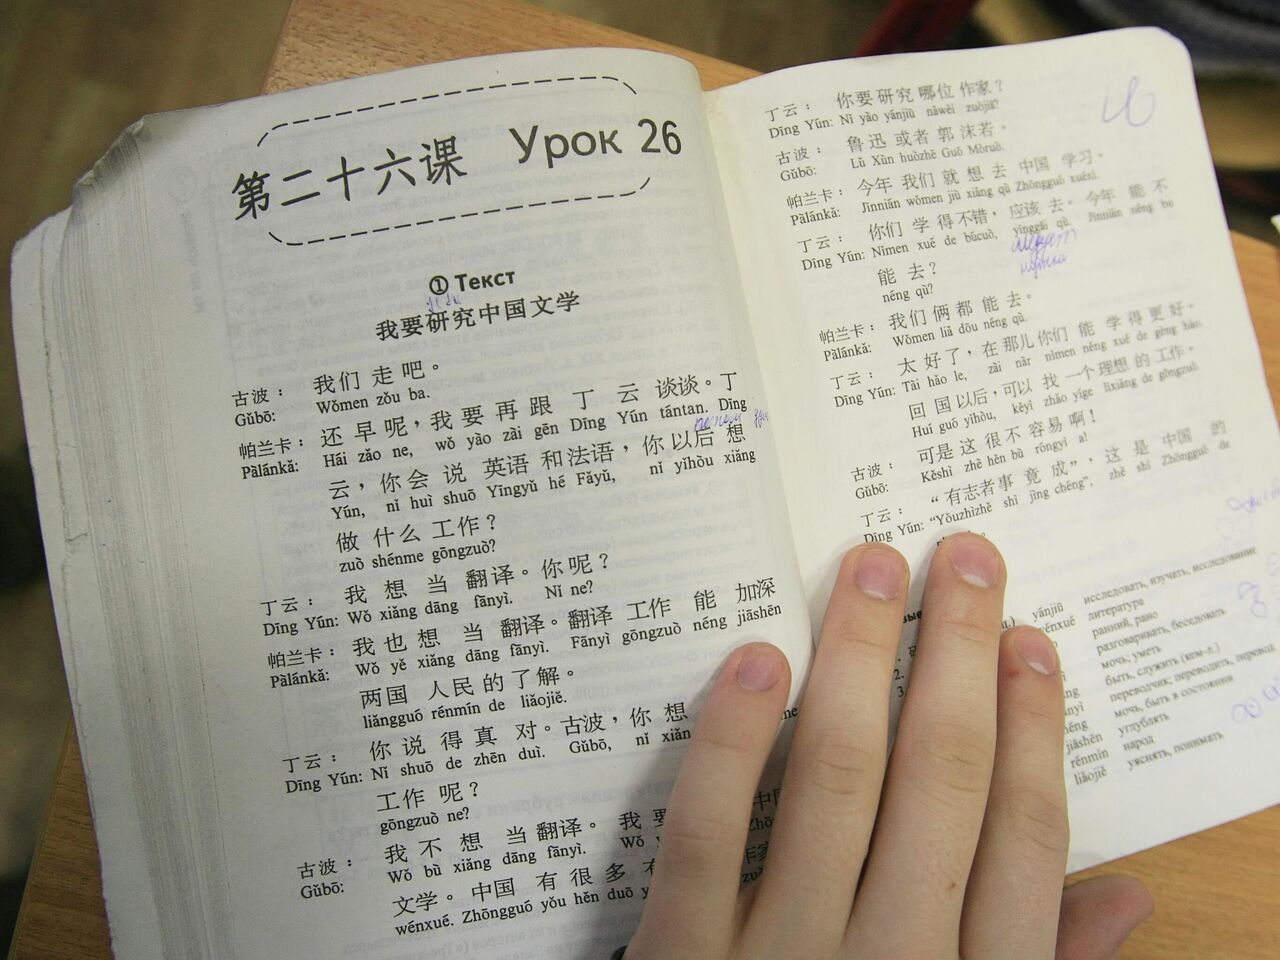 第二十六课 Урок 26
① Текст
我要研究中国文学
古波： 我们 走 吧。
Gǔbō: Wǒmen zǒu ba.
帕兰卡： 还 早 呢，我 要 再 跟 丁 云 谈谈。丁
Pàlánkǎ: Hái zǎo ne, wǒ yào zài gēn Dīng Yún tántan. Dīng
云，你 会 说 英语 和法语，你 以后 想
Yún, nǐ huì shuō Yīngyǔ hé Fǎyǔ, nǐ yǐhòu xiǎng
做 什么 工作？
zuò shénme gōngzuò?
丁云： 我 想 当 翻译。你 呢？
Dīng Yún: Wǒ xiǎng dāng fānyì. Nǐ ne?
帕兰卡： 我 也 想 当 翻译。翻译 工作 能 加深
Pàlánkǎ: Wǒ yě xiǎng dāng fānyì. Fānyì gōngzuò néng jiāshēn
两国 人民 的 了解。
liǎngguó rénmín de liǎojiě.
丁云： 你 说 得 真 对。古波，你 想
Dīng Yún: Nǐ shuō de zhēn duì. Gǔbō, nǐ xiǎn
工作 呢？
gōngzuò ne?
古波： 我 不 想 当 翻译。 我
Gǔbō: Wǒ bù xiǎng dāng fānyì.
文学。中国 有 很 多
wénxué. Zhōngguó yǒu hěn duō
丁云： 你 要 研究 哪位 作家？
Dīng Yún: Nǐ yào yánjiū nǎwèi zuòjiā?
古波： 鲁 迅 或者 郭 沫若。
Gǔbō: Lǔ Xùn huòzhě Guō Mòruò.
帕兰卡： 今年 我们 就 想 去 中国 学习。
Pàlánkǎ: Jīnnián wǒmen jiù xiǎng qù Zhōngguó xuéxí.
丁云： 你们 学 得 不错，应该 去。今年 能 不
Dīng Yún: Nǐmen xué de búcuò, yīnggāi qù. Jīnnián néng bu
能 去？
néng qù?
帕兰卡： 我们 俩 都 能 去。
Pàlánkǎ: Wǒmen liǎ dōu néng qù.
丁云： 太 好 了，在 那儿 你们 能 学 得 更 好。
Dīng Yún: Tài hǎo le, zài nàr nǐmen néng xué de gèng hǎo.
回 国 以后，可以 找 一个 理想 的 工作。
Huí guó yǐhòu, kěyǐ zhǎo yíge lǐxiǎng de gōngzuò.
古波： 可是 这 很 不 容易 啊！
Gǔbō: Kěshì zhè hěn bù róngyì a!
丁云： “有志者 事 竟 成”，这 是 中国 的
Dīng Yún: “Yǒuzhìzhě shì jìng chéng”, zhè shì Zhōngguó de
yánjiū исследовать, изучать; исследование
литература
ранний, рано
разговаривать, беседовать
мочь; уметь
быть, служить (кем-л.)
переводчик; переводить, перевод
мочь, быть в состоянии
jiāshēn углублять
rénmín народ
liǎojiě уяснять, понимать